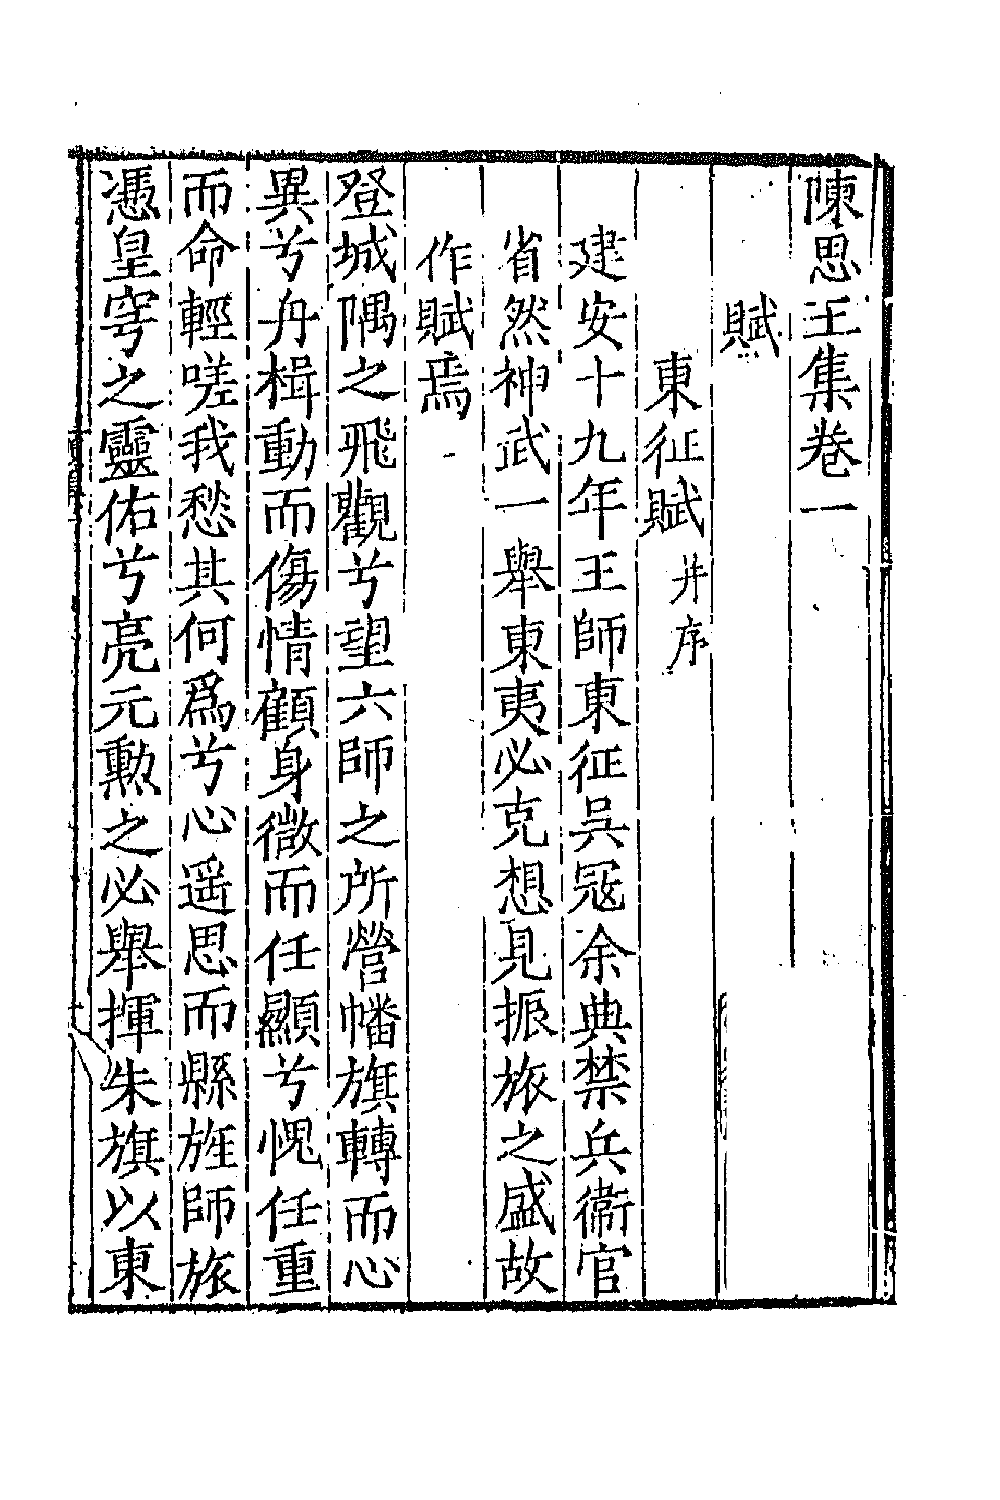 陳思王集卷一
賦
東征賦并序
建安十九年王師東征吳寇余典禁兵衛官
省然神武一舉東夷必克想見振旅之盛故
作賦焉
登城隅之飛觀兮望六師之所營幡旗轉而心
異兮舟楫動而傷情顧身微而任顯兮愧任重
而命輕嗟我愁其何爲兮心遥思而縣旌師旅
憑皇穹之靈佑兮亮元勳之必舉揮朱旗以東